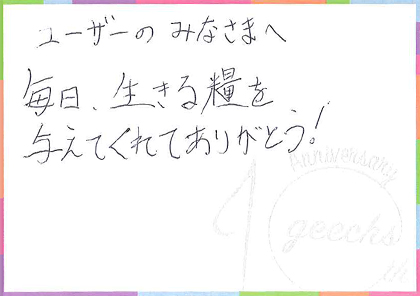 ユーザーの みなさまへ
毎日、生きる糧を
与えてくれてありがとう!
10th Anniversary
geechs